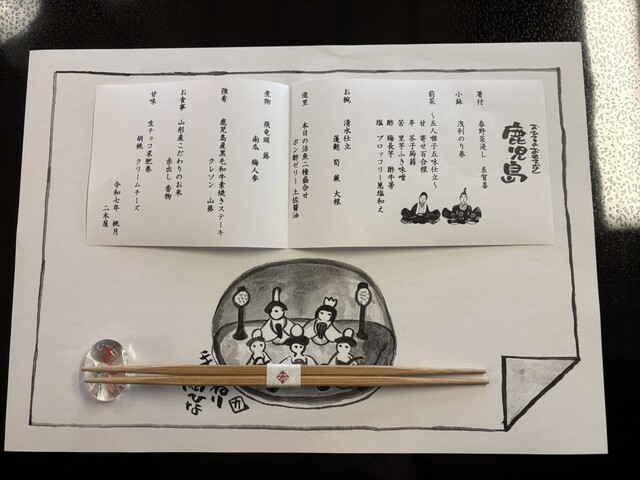 鹿児島
箸付
春野菜浸し
糸賀喜
小鉢
浅利のり巻
前菜
～五人囃子五味仕立～
甘 寄せ百合根
辛 芥子蒟蒻
苦 里芋ふき味噌
酸 梅長芋・酢牛蒡
塩 ブロッコリー昆塩和え
お椀
清水仕立
蓬麩 筍 蕨 大根
造里
本日の活魚二種盛合せ
ポン酢ゼリー 土佐醤油
煮物
飛竜頭 蕗
南瓜 梅人参
強肴
鹿児島産黒毛和牛業焼きステーキ
クレソン 山葵
お食事
山形産こだわりのお米
赤出し 香物
甘味
生チョコ求肥巻
胡桃 クリームチーズ
令和七年 桃月
二木屋